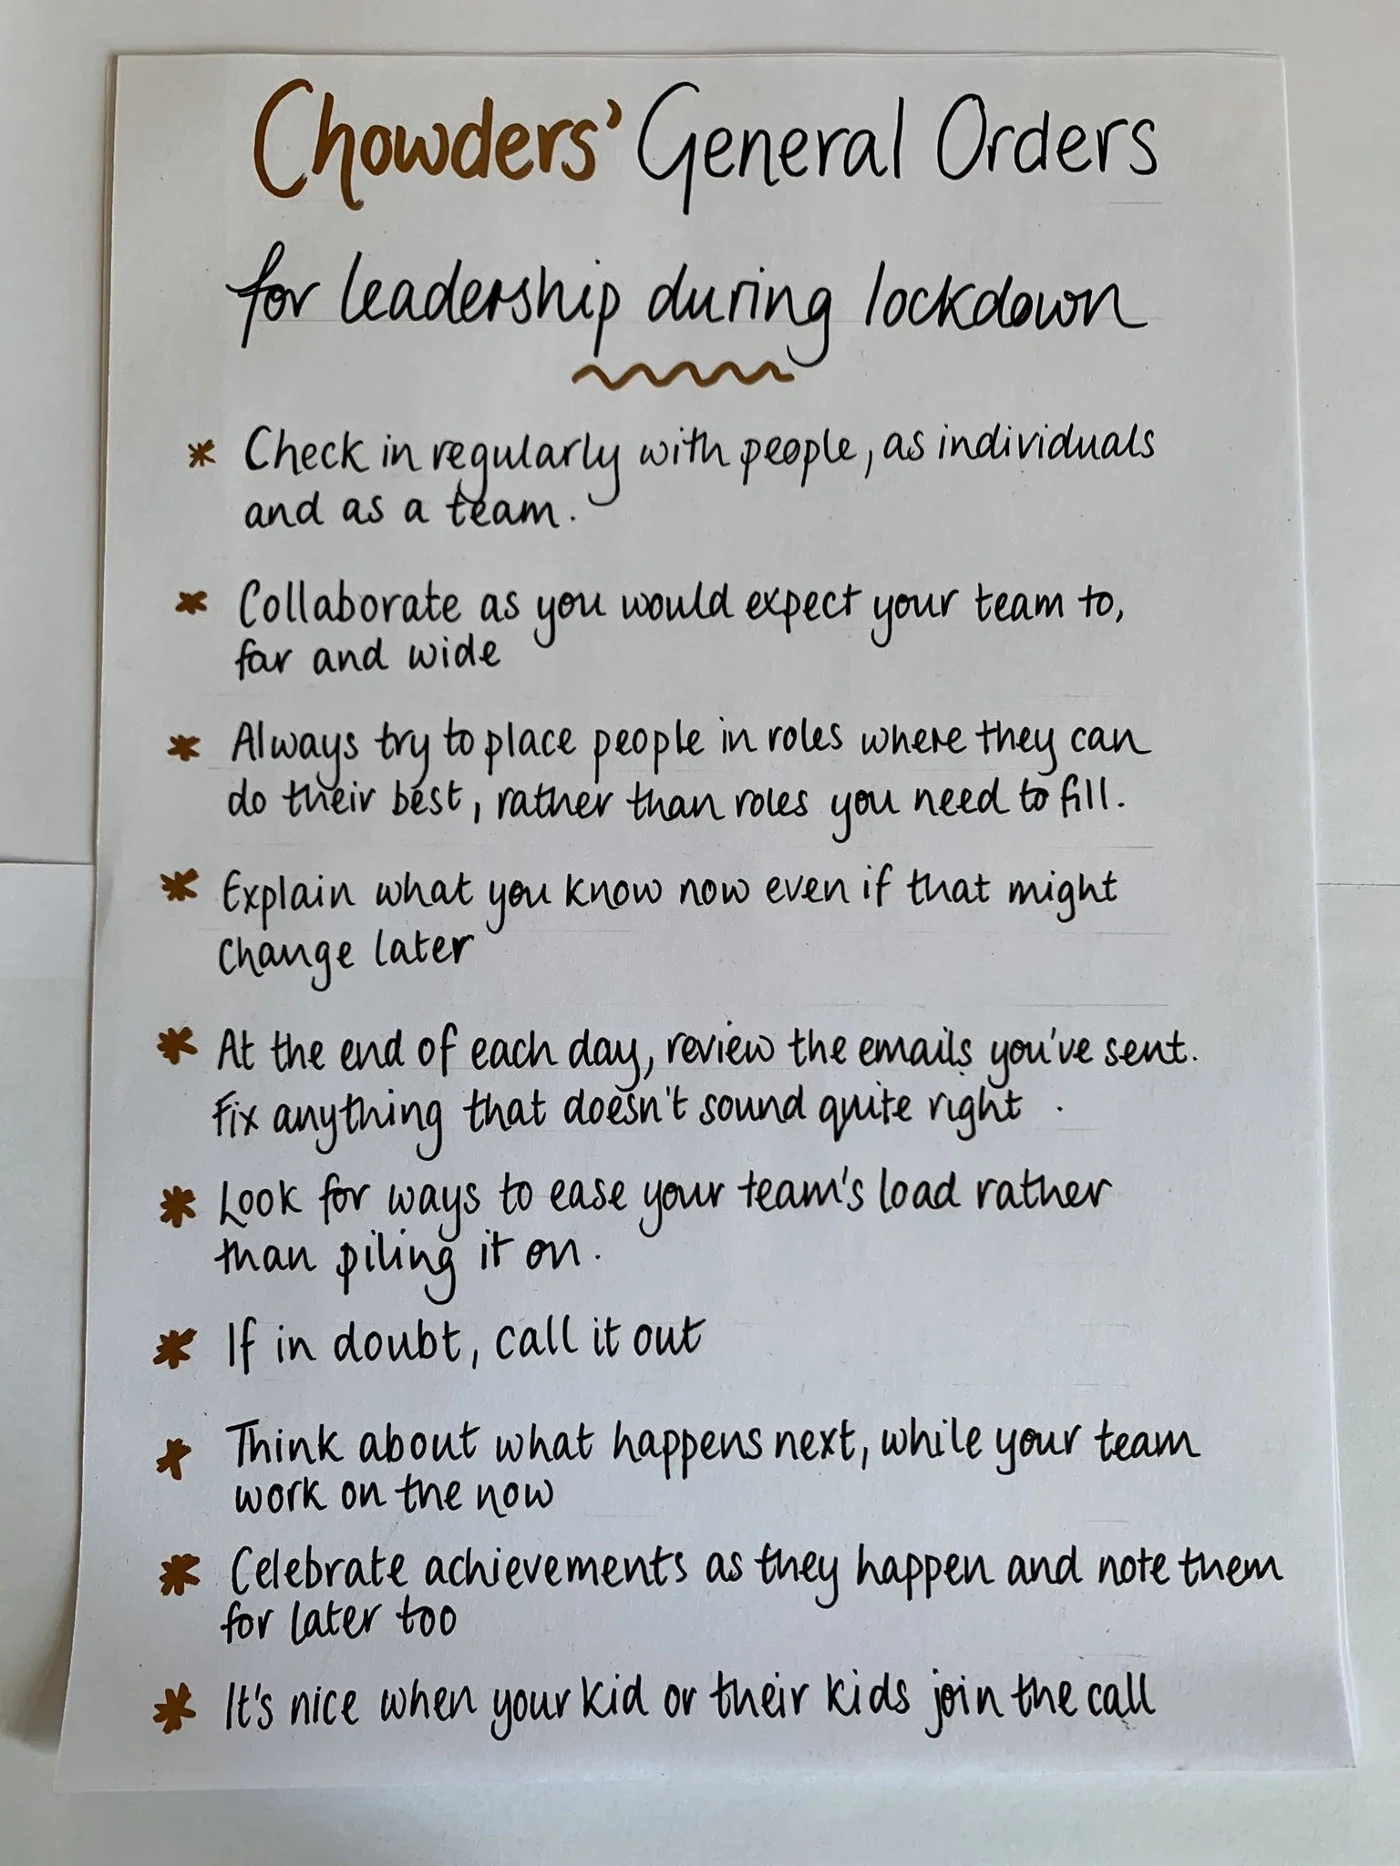 Chowders' General Orders
for leadership during lockdown
* Check in regularly with people, as individuals
and as a team.
* Collaborate as you would expect your team to,
far and wide
* Always try to place people in roles where they can
do their best, rather than roles you need to fill.
* Explain what you know now even if that might
change later
* At the end of each day, review the emails you've sent.
Fix anything that doesn't sound quite right.
* Look for ways to ease your team's load rather
than piling it on.
* If in doubt, call it out
* Think about what happens next, while your team
work on the now
* Celebrate achievements as they happen and note them
for later too
* It's nice when your kid or their kids join the call